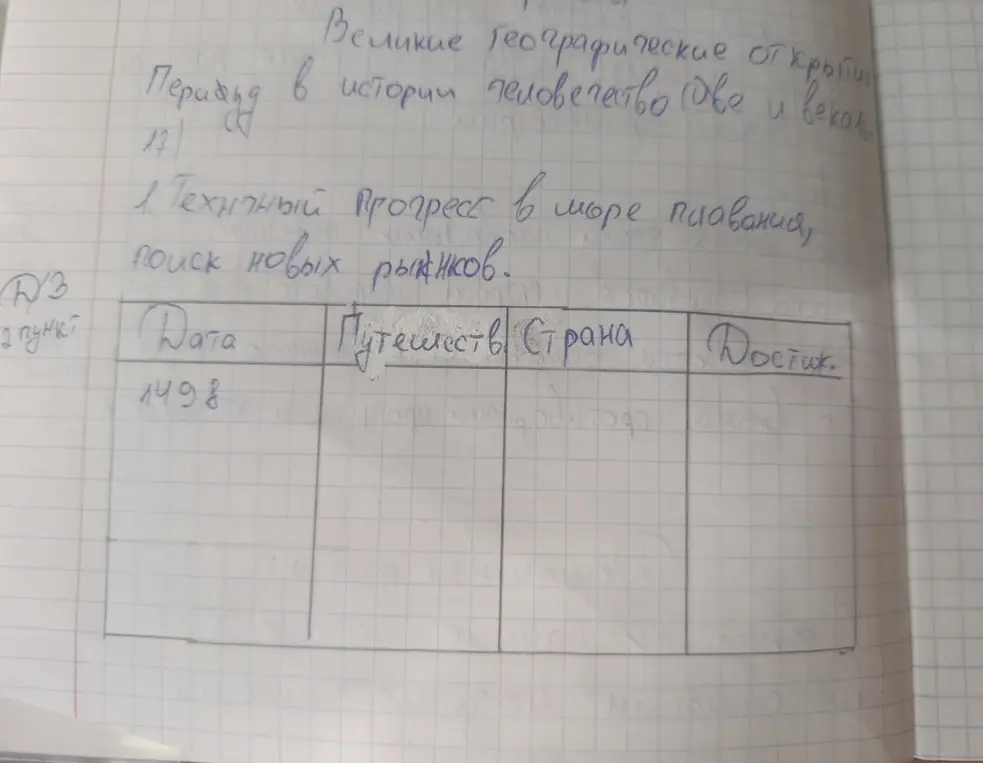 Великие географические открытия
Период в истории человечество (две и векан
17)
1. Технчный прогресс в море плавания,
поиск новых рынков.
ДЗ
2 пункт
Дата
Путешеств.
Страна
Достиж.
1498